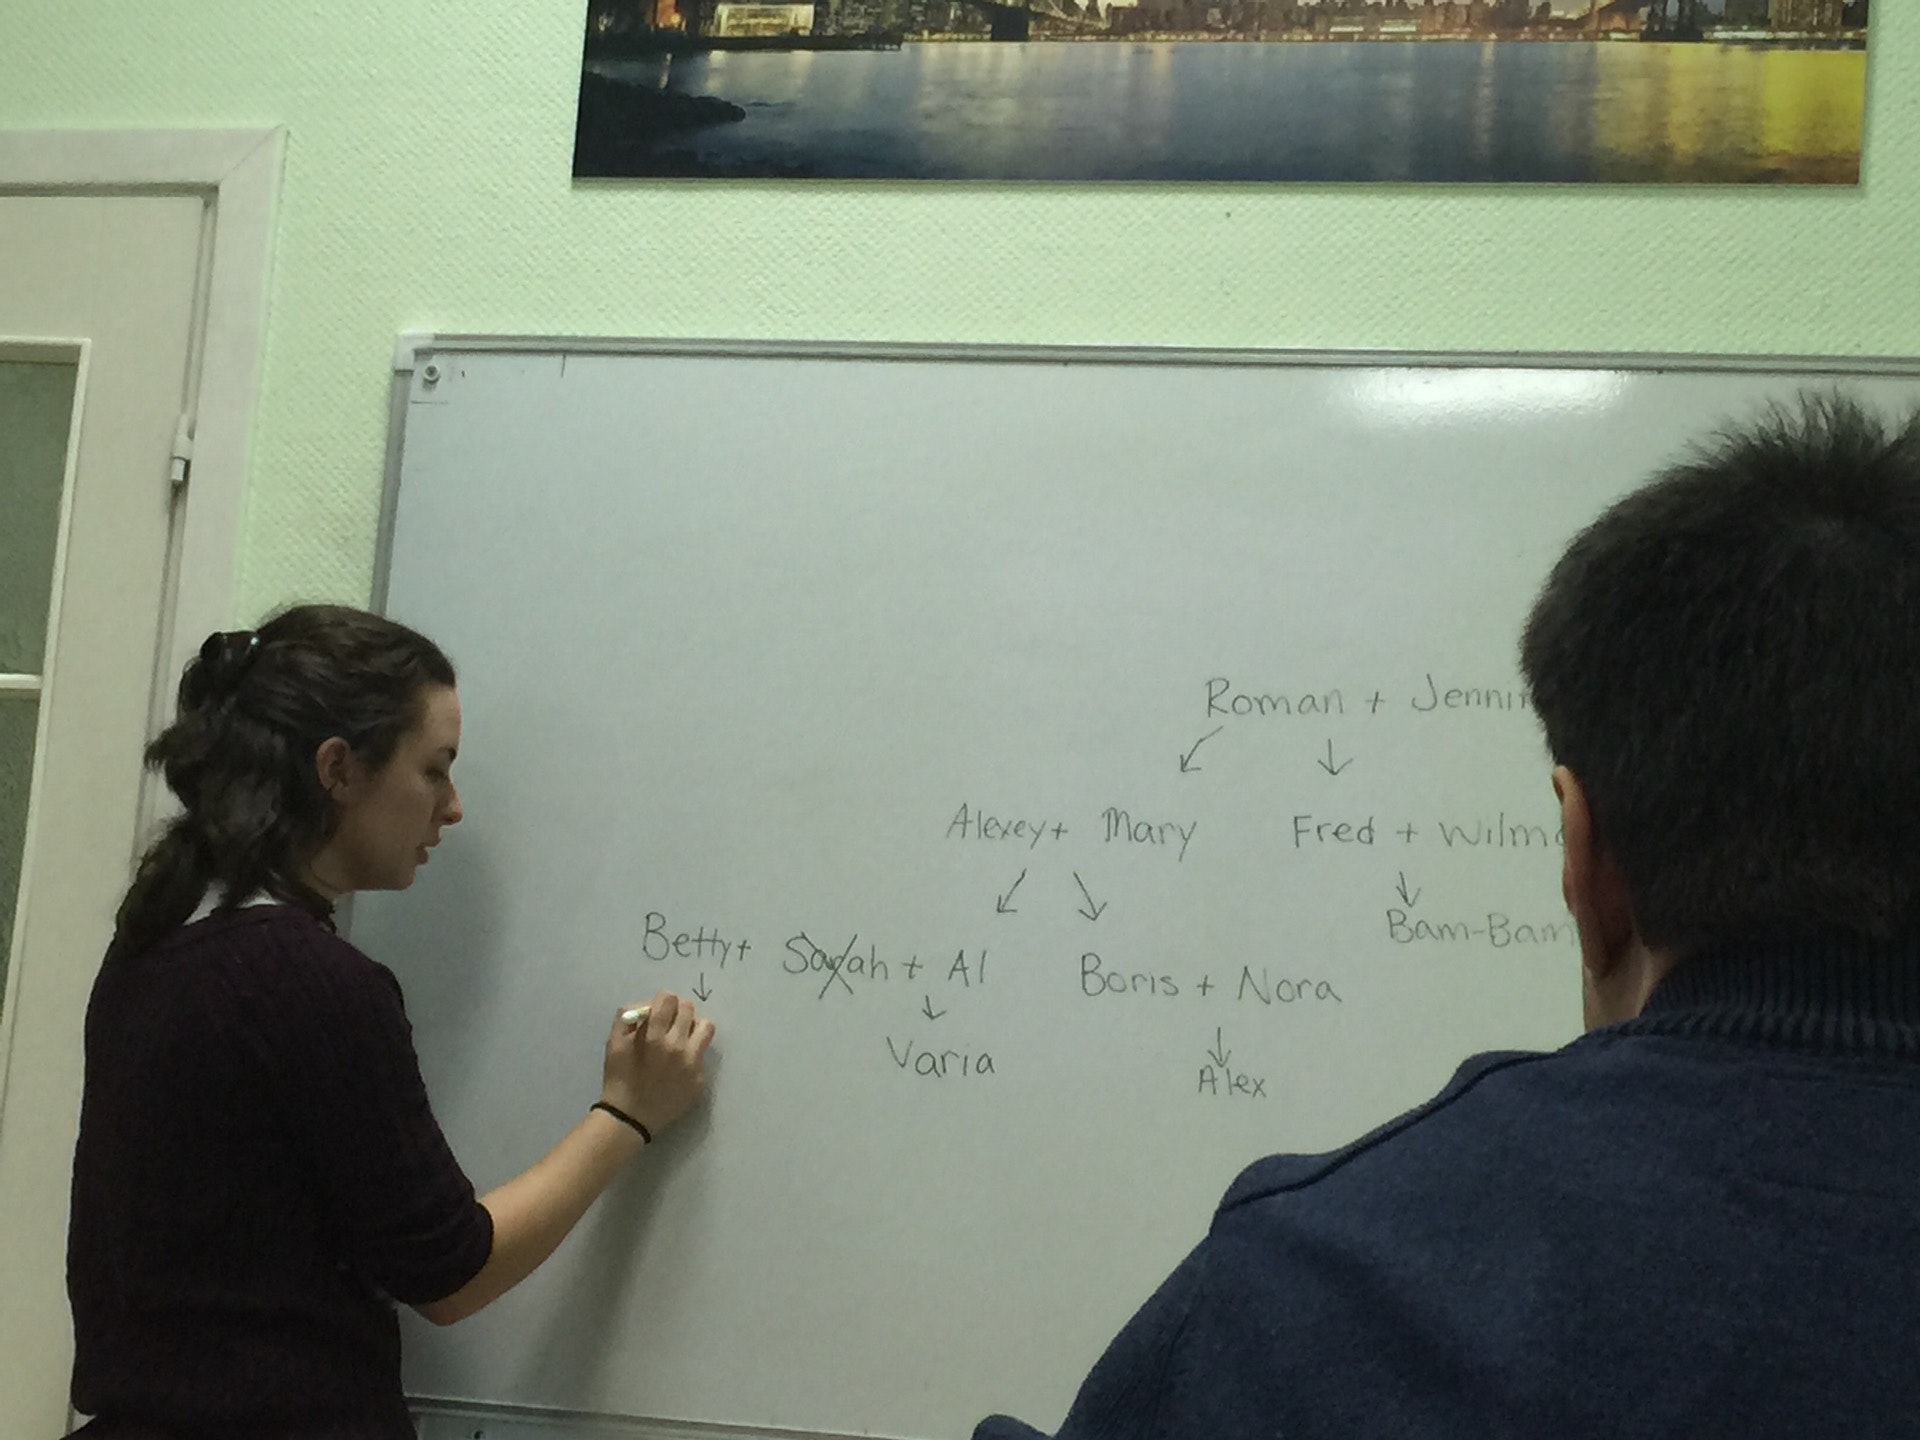 Roman + Jennif
Alexey + Mary Fred + Wilma
Betty + Sarah + Al Boris + Nora Bam-Bam
Varia Alex